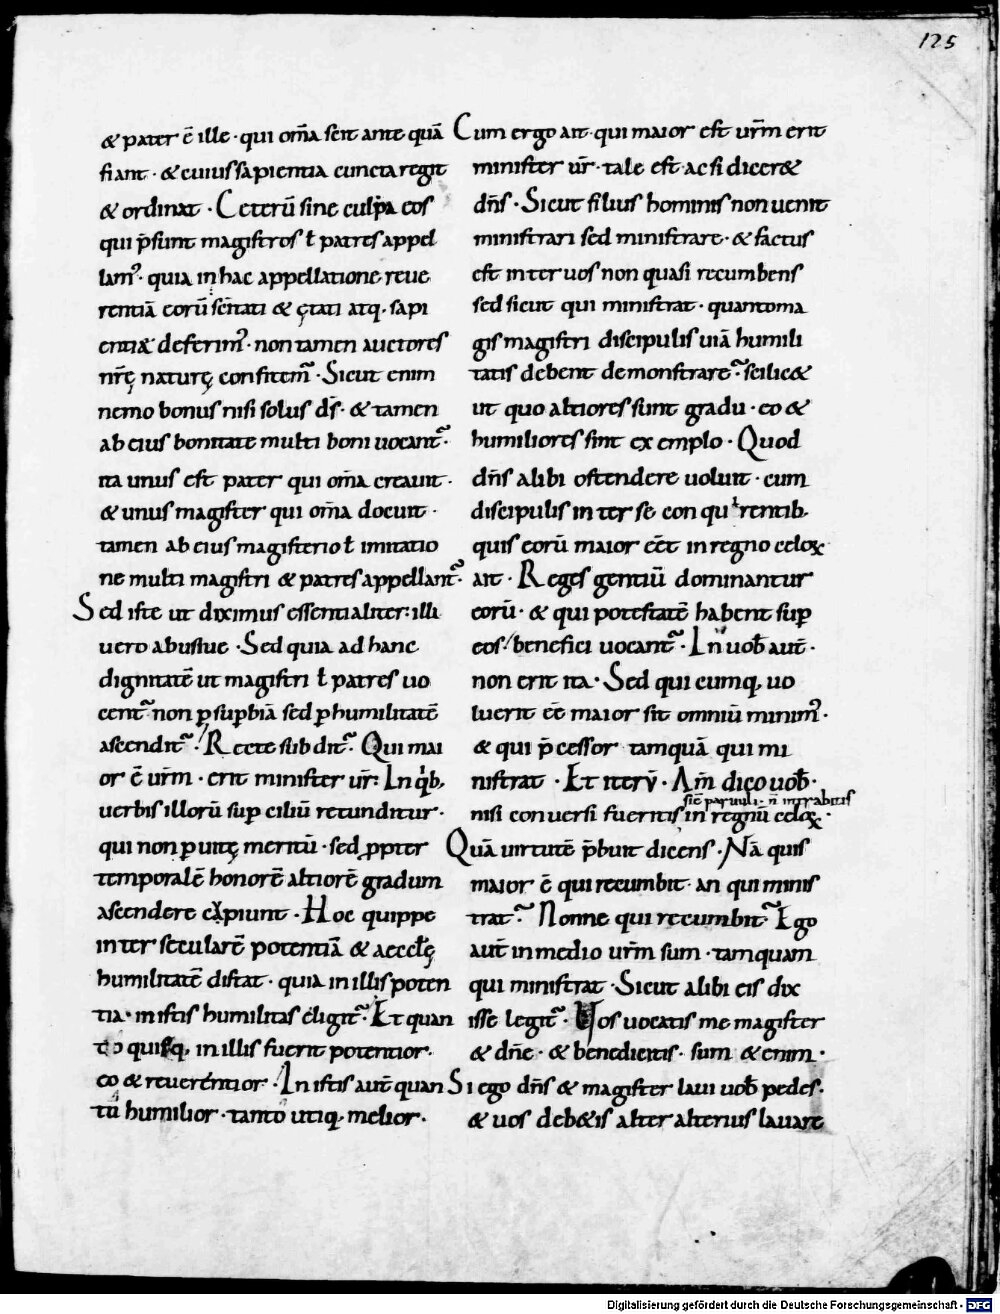 125
& pater ē ille · qui om̄a scit ante quā
fiant · & cuius sapientia cuncta regit
& ordinat · Ceterū sine culpa eos
qui p̄sunt magistros ł patres appel
lam᾽ · quia in hac appellatione reue
rentiā eorū sc̄itati & ętati atq; sapi
entię deferim᾽ · non tamen auctores
nr̄ę naturę confitem᷑ · Sicut enim
nemo bonus nisi solus d̄s · & tamen
ab eius bonitate multi boni uocant᷑ ·
ita unus est pater qui om̄a creauit ·
& unus magister qui om̄a docuit ·
tamen ab eius magisterio ł imitatio
ne multi magistri & patres appellant᷑ ·
Sed iste ut diximus essentialiter: illi
uero abusiue · Sed quia ad hanc
dignitatē ut magistri ł patres uo
cent᷑ non ꝑ suꝑbiā sed ꝑ humilitatē
ascendit᷑ · Recte subdit᷑ · Qui mai
or ē ur̄m · erit minister ur̄: In qͥb;
uerbis illorū suꝑciliū retunditur ·
qui non ꝑ uitę meritū · sed ꝓpter
temporalē honorē altiorē gradum
ascendere cupiunt · Hoc quippe
inter secularē potentiā & aeccłę
humilitatē distat · quia in illis poten
tia · in istis humilitas eligit᷑ · Et quan
to quisq; in illis fuerit potentior ·
eo & reuerentior · In istis aut̄ quan
tū humilior · tanto utiq; melior ·
Cum ergo ait · qui maior est ur̄m erit
minister ur̄ · tale est ac si dicer&
dn̄s · Sicut filius hominis non uenit
ministrari sed ministrare · & factus
est inter uos non quasi recumbens
sed sicut qui ministrat · quantoma
gis magistri discipulis uiā humili
tatis debent demonstrare · scilic&
ut quo altiores sunt gradu · eo &
humiliores sint exemplo · Quod
dn̄s alibi ostendere uoluit · cum
discipulis inter se conquirentib;
quis eorū maior eēt in regno celoꝝ
ait · Reges gentiū dominantur
eorū · & qui potestatē habent suꝑ
eos · benefici uocant᷑ · In uob̄ aut̄ ·
non erit ita · Sed qui cumq; uo
luerit eē maior sit omniū minim᾽ ·
& qui p̄cessor tamquā qui mi
nistrat · Et iterū · Am̄ dico uob̄ ·
sic̄ paruuli · n̄ intrabitis
nisi conuersi fueritis in regnū celoꝝ ·
Quā uirtutē p̄buit dicens · Nā quis
maior ē qui recumbit · an qui minis
trat᷑ · Nonne qui recumbit᷑ · Ego
aut̄ in medio ur̄m sum · tamquam
qui ministrat · Sicut alibi eis dix
isse legit᷑ · Uos uocatis me magister
& dn̄e · & benedicitis · sum & enim ·
Si ego dn̄s & magister laui uob̄ pedes ·
& uos deb&is alter alterius lauare
Digitalisierung gefördert durch die Deutsche Forschungsgemeinschaft - DFG